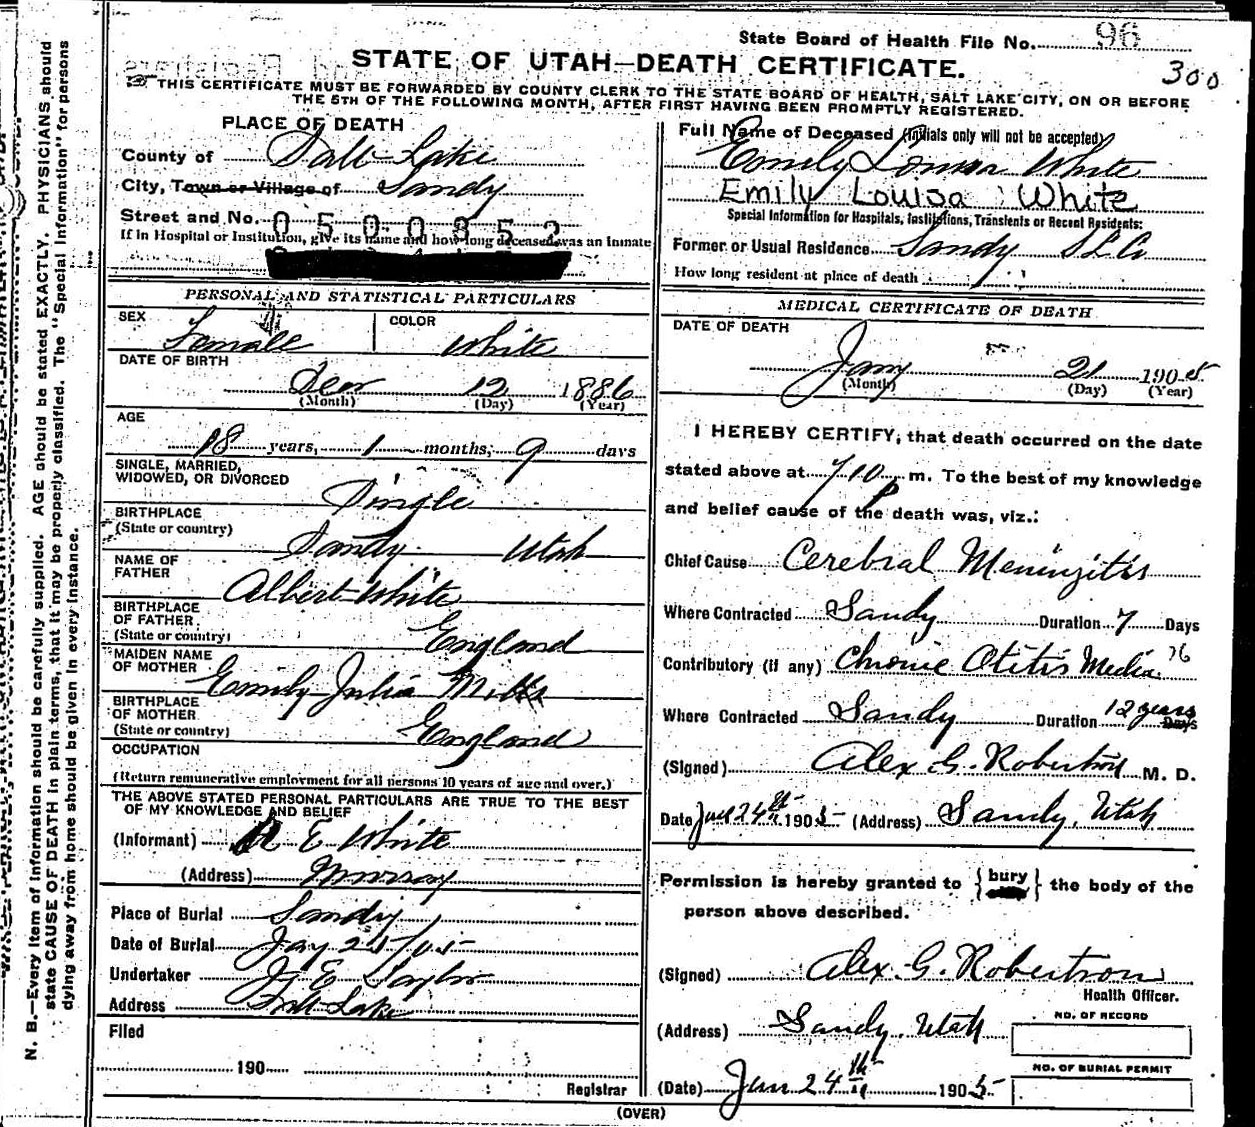 State Board of Health File No. 96
300
STATE OF UTAH—DEATH CERTIFICATE.
THIS CERTIFICATE MUST BE FORWARDED BY COUNTY CLERK TO THE STATE BOARD OF HEALTH, SALT LAKE CITY, ON OR BEFORE
THE 5TH OF THE FOLLOWING MONTH, AFTER FIRST HAVING BEEN PROMPTLY REGISTERED.
N. B.—Every item of information should be carefully supplied. AGE should be stated EXACTLY. PHYSICIANS should
state CAUSE OF DEATH in plain terms, that it may be properly classified. The "Special Information" for persons
dying away from home should be given in every instance.
PLACE OF DEATH
County of Salt Lake
City, Town or Village of Sandy
Street and No. 0500352
If in Hospital or Institution, give its name and how long deceased was an inmate
PERSONAL AND STATISTICAL PARTICULARS
SEX Female COLOR White
DATE OF BIRTH
Decr 12 1886
(Month) (Day) (Year)
AGE
18 years, 1 months, 9 days
SINGLE, MARRIED,
WIDOWED, OR DIVORCED Single
BIRTHPLACE
(State or country) Sandy Utah
NAME OF
FATHER Albert White
BIRTHPLACE
OF FATHER
(State or country) England
MAIDEN NAME
OF MOTHER Emily Julia
BIRTHPLACE
OF MOTHER
(State or country) England
OCCUPATION
(Return remunerative employment for all persons 10 years of age and over.)
THE ABOVE STATED PERSONAL PARTICULARS ARE TRUE TO THE BEST
OF MY KNOWLEDGE AND BELIEF
(Informant) E White
(Address) Murray
Place of Burial Sandy
Date of Burial Jay 25/05
Undertaker J E Taylor
Address Salt Lake
Filed
190
Registrar
Full Name of Deceased (Initials only will not be accepted)
Emily Louisa White
Emily Louisa White
Special Information for Hospitals, Institutions, Transients or Recent Residents:
Former or Usual Residence Sandy S L Co
How long resident at place of death
MEDICAL CERTIFICATE OF DEATH
DATE OF DEATH
Jany 21 1905
(Month) (Day) (Year)
I HEREBY CERTIFY, that death occurred on the date
stated above at 710 P m. To the best of my knowledge
and belief cause of the death was, viz.:
Chief Cause Cerebral Meningitis
Where Contracted Sandy Duration 7 Days
Contributory (if any) Chronic Otitis Media 76
Where Contracted Sandy Duration 12 years Days
(Signed) Alex G. Robertson M. D.
Date Jan 24th 1905 (Address) Sandy, Utah
Permission is hereby granted to { bury } the body of the
person above described.
(Signed) Alex. G. Robertson
Health Officer.
(Address) Sandy, Utah
NO. OF RECORD
NO. OF BURIAL PERMIT
(Date) Jan 24th 1905
(OVER)